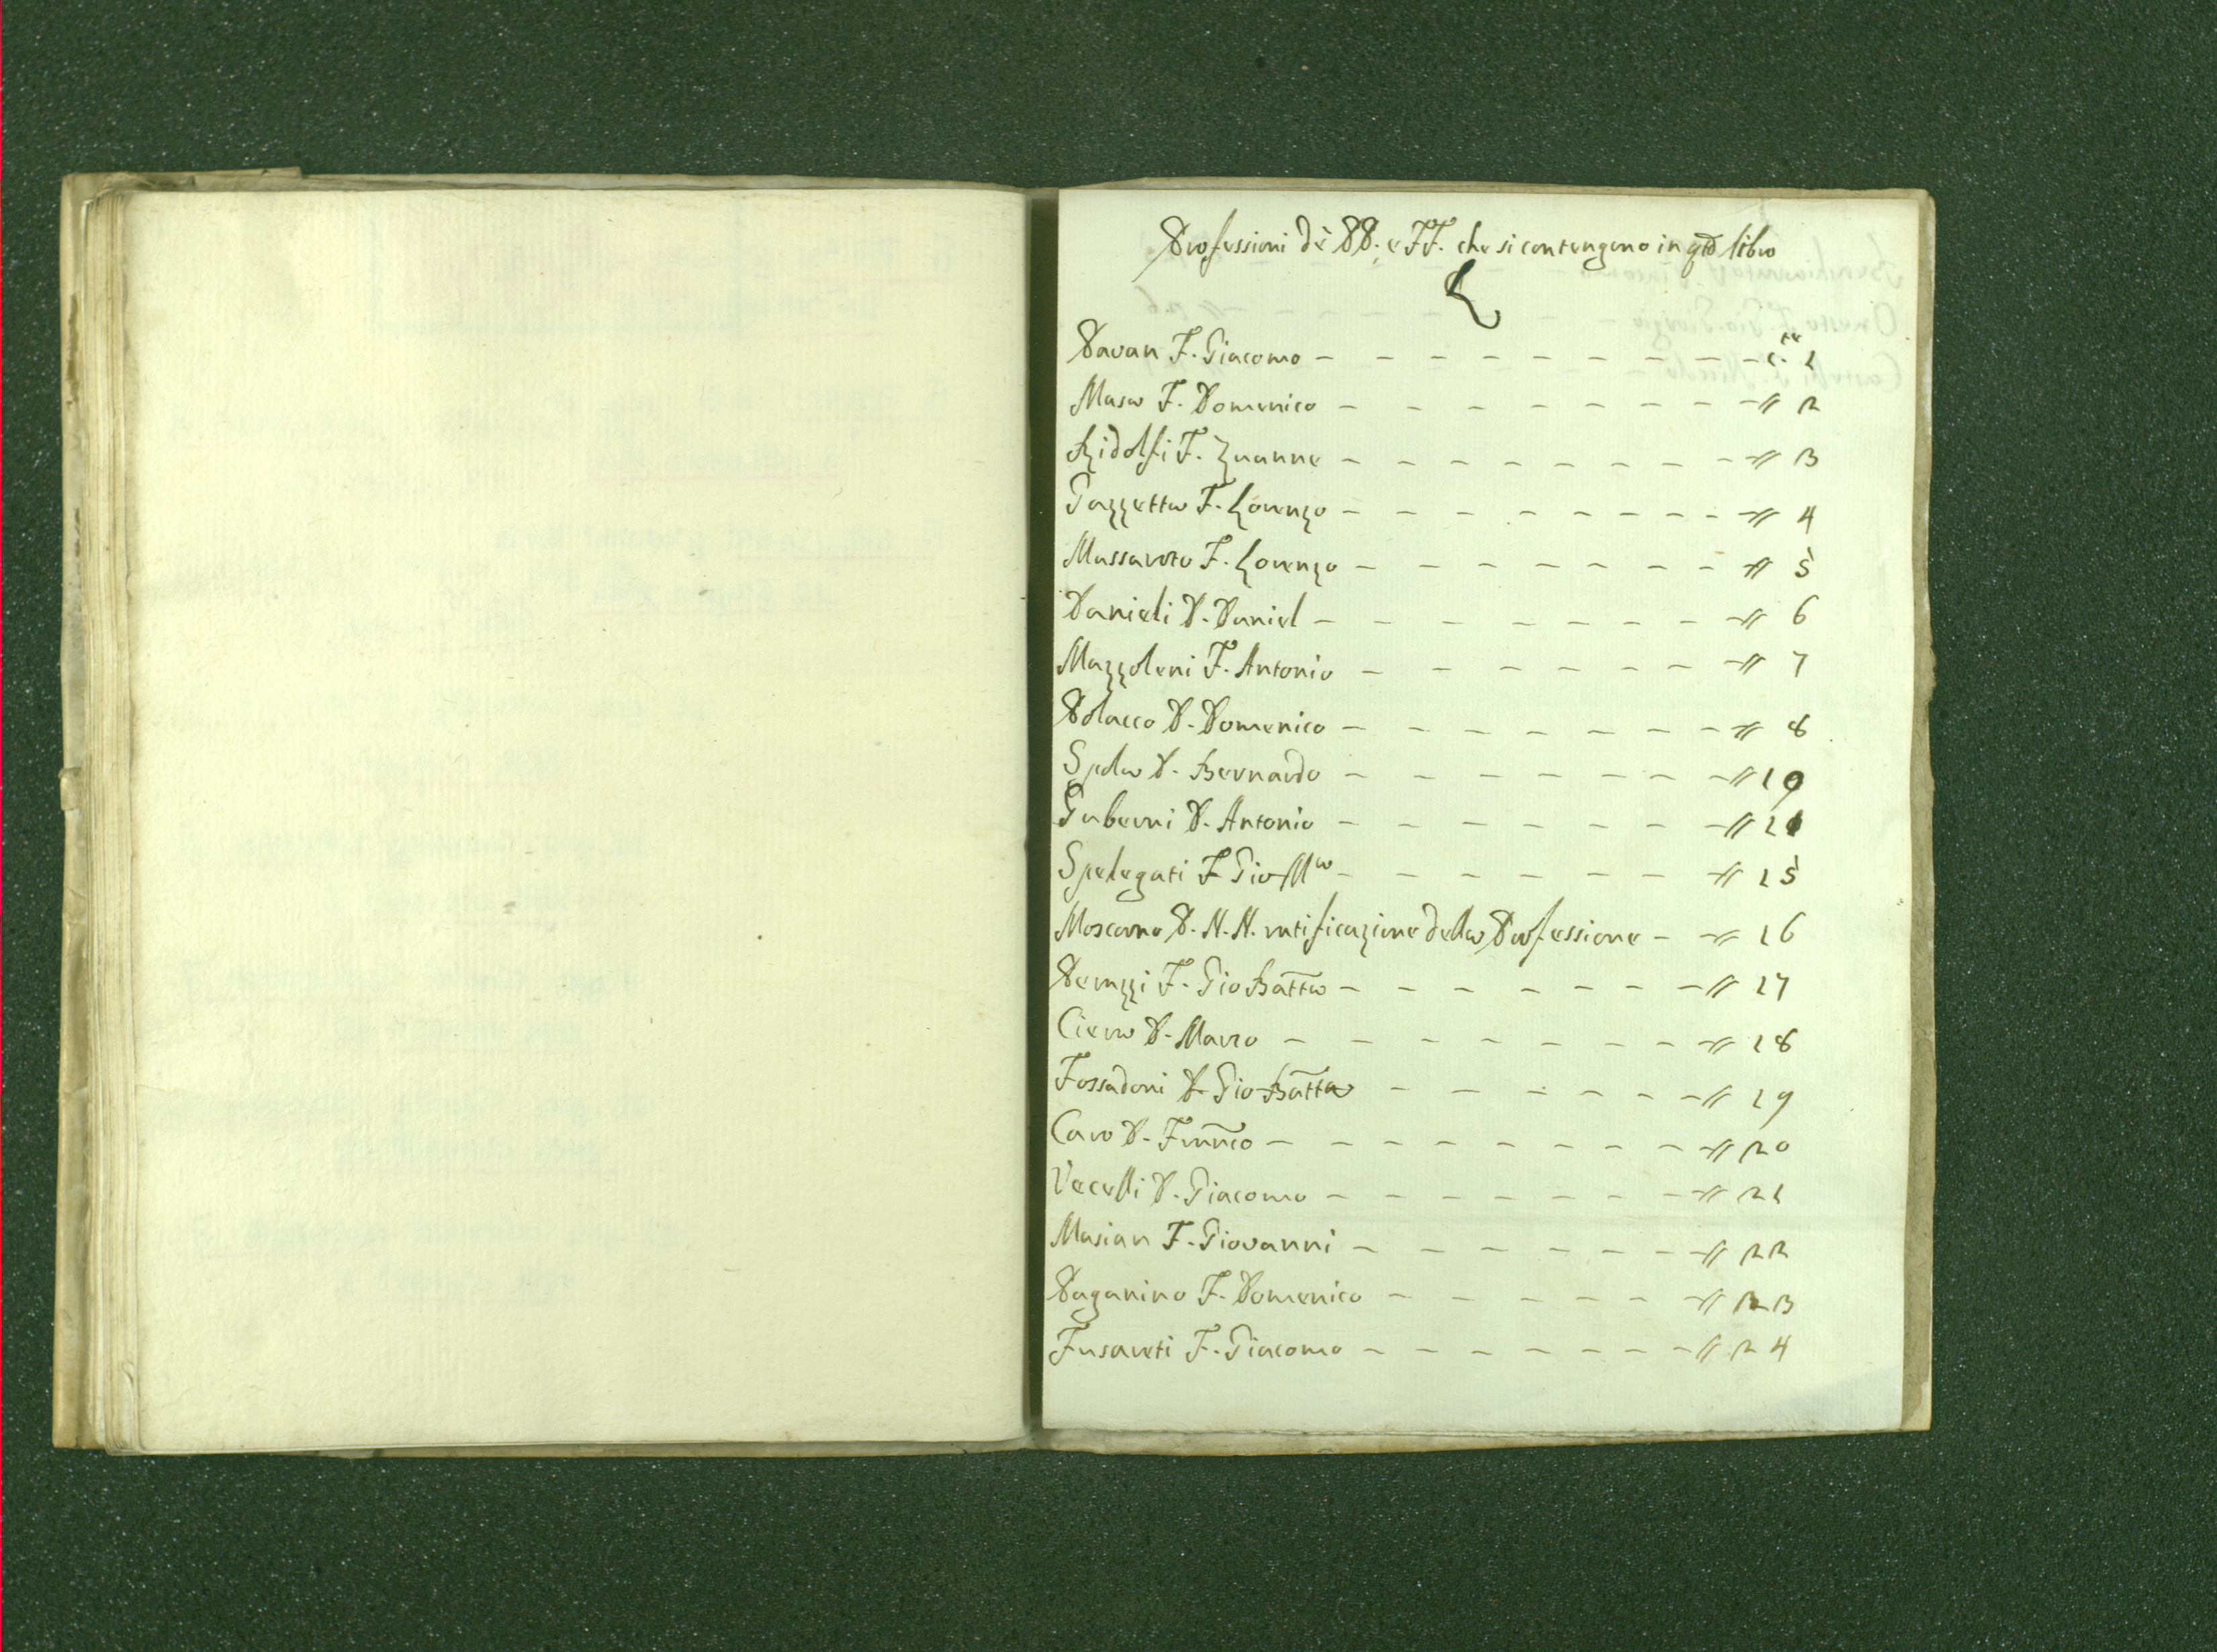 Professioni dè PP. e FF. che si contengono in qto libro
Pavan F. Giacomo - - - - - - - - cte 1
Masa F. Domenico - - - - - - - - // 2
Ridolfi F. Zuanne - - - - - - - - // 3
Gazzetta F. Lorenzo - - - - - - - - // 4
Massaroto F. Lorenzo - - - - - - - // 5
Danieli P. Daniel - - - - - - - // 6
Mazzoleni F. Antonio - - - - - - // 7
Polacco P. Domenico - - - - - - - // 8
Spola P. Bernardo - - - - - - - // 10
Guberni P. Antonio - - - - - - - // 11
Spelegati F. Gio Ma - - - - - - // 15
Moscona P. N. N. ratificazione della Professione - // 16
Perazzi F. Gio Batta - - - - - - - // 17
Ciera P. Marco - - - - - - - - // 18
Fossadoni P. Gio Batta - - - - - - // 19
Caro P. Franco - - - - - - - - // 20
Vecelli P. Giacomo - - - - - - - // 21
Masian F. Giovanni - - - - - - - // 22
Paganino F. Domenico - - - - - - // 23
Fusareti F. Giacomo - - - - - - - // 24